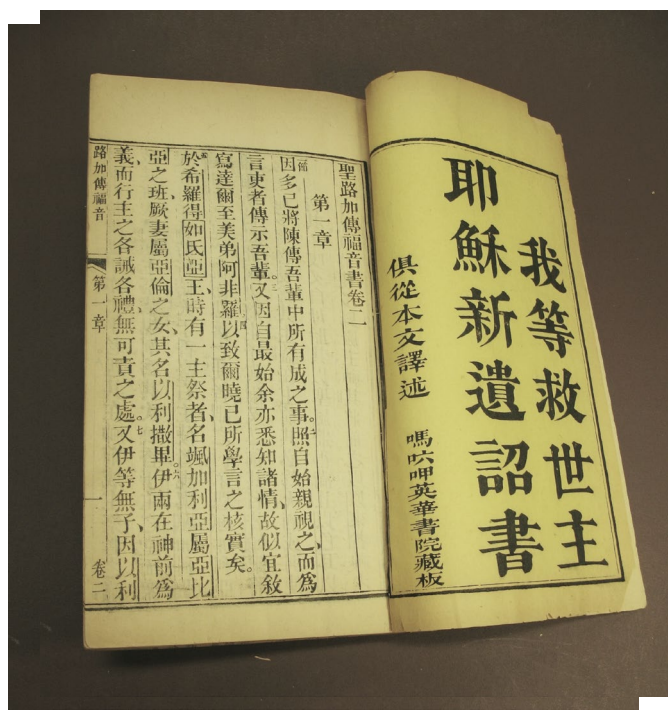 我等救世主
耶穌新遺詔書
俱從本文譯述
嗎㕭呷英華書院藏板
聖路加傳福音書卷二
第一章
因多已將陳傳吾輩中所有成之事。二照自始親視之而為
言吏者傳示吾輩。三又因自最始余亦悉知諸情、故似宜敘
寫達爾至美弟阿非羅、四以致爾曉已所學言之核實矣。
五於希羅得如氏亞王、時有一主祭者、名颯加利亞屬亞比
亞之班、厥妻屬亞倫之女、其名以利撒畢。六伊兩在神前為
義、而行主之各誡各禮、無可責之處。七又伊等無子、因以利
路加傳福音
第一章
一
卷二